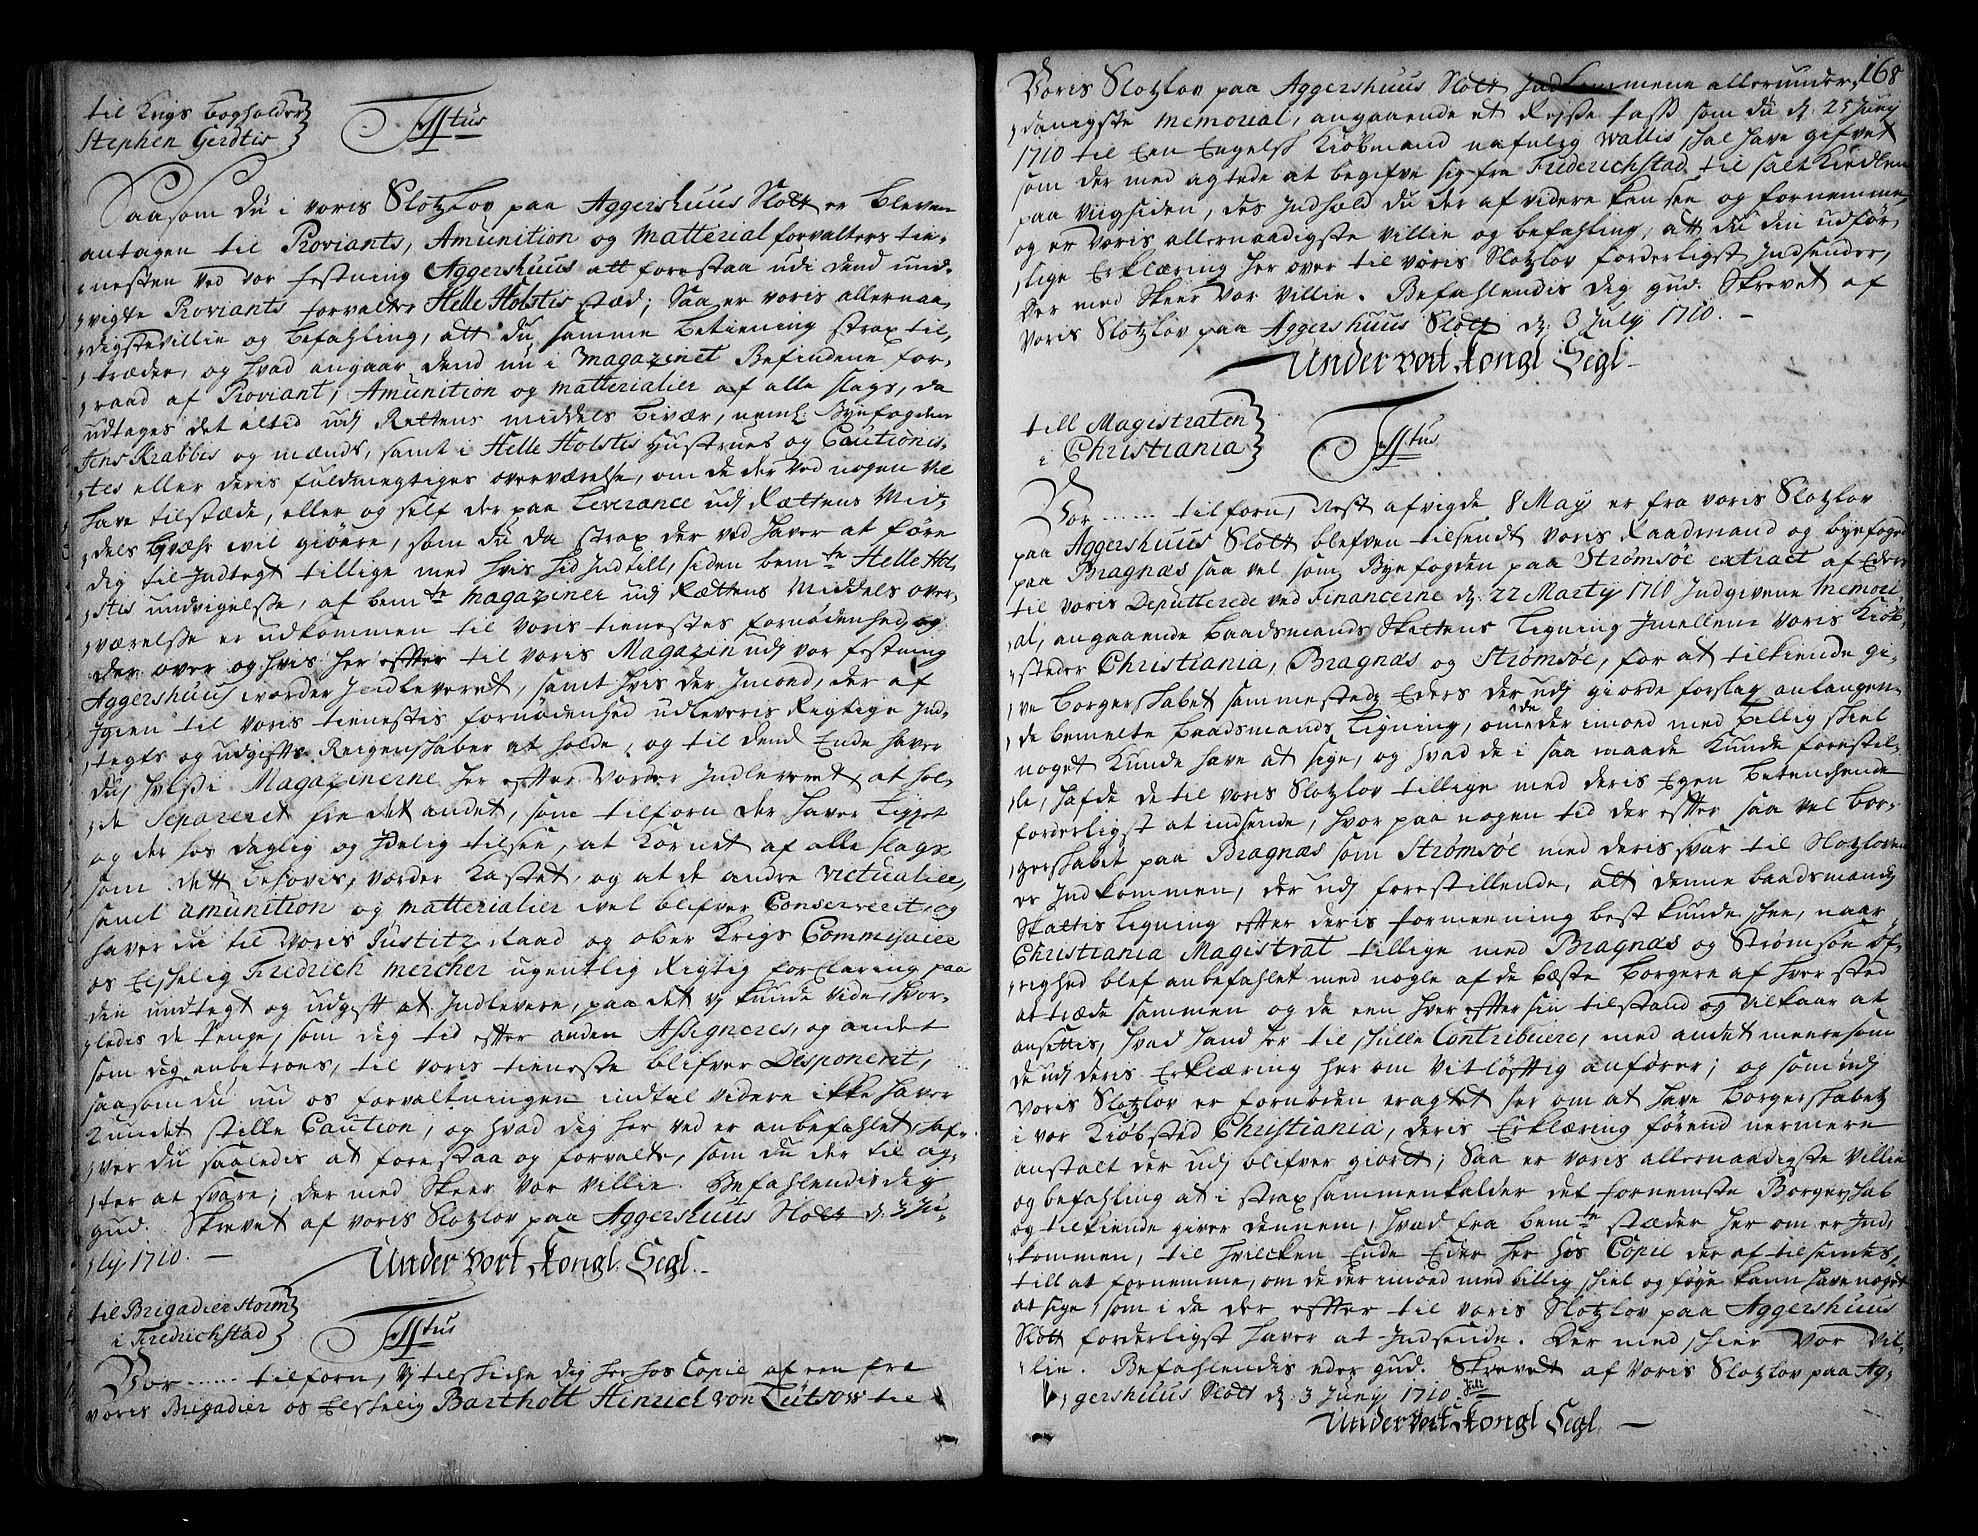 til Krigs bogholder
Stephen Gerdtis
Tittus
Saasom du i voris Slotzlov paa Aggershuus Slott er bleven
antagen til Proviants, Amunition og Matterial forvalters tie-
nesten ved vor festning Aggershuus att forestaa udi dend und-
vigte Proviants forvalter Helle Holstis sted; Saa er voris allernaa-
digste villie og befahling, att du samme betiening strax til-
træder, og hvad angaar dend nu i magazinet befindene for-
raad af Proviant, Amunition og matterialier af alle slags, da
udtages det altid udj Rettens middels bivær, neml: Byefogden
Jens Krabbis og mænds, samt i Helle Holstis Hustrues og Cautionis-
tes eller deris fuldmegtiges overværelse, om de der ved nogen vil
have tilstæde, eller og self der paa Leverance udj Rættens Mid-
dels byæhr vil giøre, som du da strax der ved haver at føre
dig til Indtegt tillige med hvis hid Indtill, siden bemte Helle Hol-
stis undvigelse, af bemte magaziner udj Rættens Middels over-
værelse er udkommen til voris tienestes fornødenhed og
der over og hvis her efter til voris Magazin udj vor festning
Aggershuus vorder Indleveret, samt hvis der Imod, der af
Igien til voris tienestis fornødenhed udleveris Rigtige Ind-
tegts og udgifts Reigenskaber at holde, og til dend Ende haver
du, hvis i Magazinerne her efter vorder Indleveret, at hol-
de Separeret fra det andet, som tilforn der haver Ligget
og der hos daglig og Idelig tilsee, at Kornet af alle slags
som dett behøvis, værder Kastet, og at de andre victualier,
samt amunition og matterialier vel blifver Conserverit, og
haver du til voris Justitz Raad og ober Krigs Commisaire
os Elskelig Fredrich mercher ugentlig Rigtig forklaring paa
den indtegt og udgift at Indlevere, paa det vj kunde vide, hvor-
ledis de Penge, som dig tid efter anden Assigneres, og andet
som dig anbetroes, til voris tieneste blifver Desponerit,
saasom du nu os forvaltningen indtil videre ikke haver
Kundet stille Caution, og hvad dig her ved er anbefahlet haf-
ver du saaledis at forestaa og forvalte, som du der til ag-
ter at svare; der med skeer vor villie. Befahlendis dig
gud. Skrevet af voris Slotzlov paa Aggershuus Slott d: 3 Ju-
ly 1710. —
Under vort Kongl: Segl.
til Brigadier storm
i Fredrichstad
Tittus
Vor ...... tilforn, Vj tilskiche dig her hos Copie af een fra
voris Brigadier os Elskelig Bartholt Heinrich von Lutsow til
168
Voris Slotzlov paa Aggershuus Slott Indkommene allerunder-
danigste memorial, angaaende et Reise Pass som du d: 25 Juny
1710 til Een Engelsk Kiøbmand nafnlig Wallis skal have gifvet
som der med agtede at begifve sig fra Frederichstad til salt Kiedlen
paa viigsiden, des Indhold du der af videre kan see og fornemme,
og er voris allernaadigste villie og befahling, att du din udfør-
lige Erklæring her over til voris Slotzlov forderligst Indsender,
der med skeer vor villie. Befahlendis dig gud. Skrevet af
voris Slotzlov paa Aggershuus Slott d: 3 July 1710. —
Under vort Kongl Segl. —
till Magistraten
i Christiania
Tittus
Vor ...... tilforn, Nest afvigde 8 May er fra voris Slotzlov
paa Aggershuus Slott blefven tilsendt voris Raadmand og byefoged
paa Bragnæs saa vel som Byefogden paa Strømsøe extract af Eders
til voris Deputterede ved Financerne d: 22 Marty 1710 Indgivene memori-
al, angaaende baadsmands Skattens Ligning Jmellem voris Kiøb-
steder Christiania, Bragnæs og Strømsøe, for at tilkiende gi-
ve borgerskabet sammestedz Eders der udj giorde forslag anlangen-
de bemelte baadsmands Ligning, om de der imod med billig skiel
noget kunde have at sige, og hvad de i saa maade kunde forestil-
le, hafde de til voris Slotzlov tillige med deris Egen betenchende
forderligst at indsende, hvor paa nogen tid der efter saa vel bor-
gerskabet paa Bragnæs som Strømsøe med deris svar til Slotzloven
er Indkommen, der udj forestillende, att denne baadsmands
Skattis Ligning efter deris formeening best kunde skee, naar
Christiania Magistrat tillige med Bragnæs og Strømsøe Øf-
righed blef anbefahlet med nogle af de beste borgere af hver sted
at træde sammen og da een hver efter sin tilstand og vilkaar at
ansettis, hvad hand her til skulle Contribuere, med andet meere som
de udj deris Erklæring her om vitløftig anfører; og som udj
voris Slotzlov er fornøden eragtet her om at have borgerskabetz
i vor Kiøbsted Christiania, deris Erklæring førend nermere
anstalt der udj blifver giort; Saa er voris allernaadigste villie
og befahling at i strax sammenkalder det fornemste Borgerskab
og tilkiende giver dennem, hvad fra bemte stæder her om er Ind-
kommen, til hvilcken Ende Eder her hos Copie der af tilsendes
till at fornemme, om de der imod med billig skiel og føye kann have noget
at sige, som i da der efter til voris Slotzlov paa Aggershuus
Slott forderligst haver at Indsende. Der med skier vor vil-
lie. Befahlendis eder gud. Skrevet af voris Slotzlov paa Ag-
gershuus Slott d: 3 Juny 1710. Juli
Under vort Kongl Segl. —